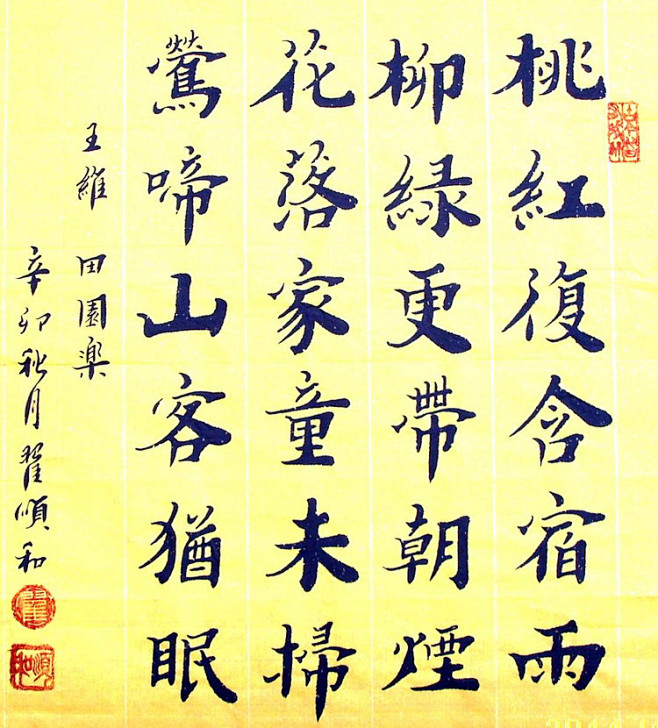 桃紅復含宿雨
柳緑更帶朝煙
花落家童未掃
鶯啼山客猶眠
王維 田園楽
辛卯秋月翟順和